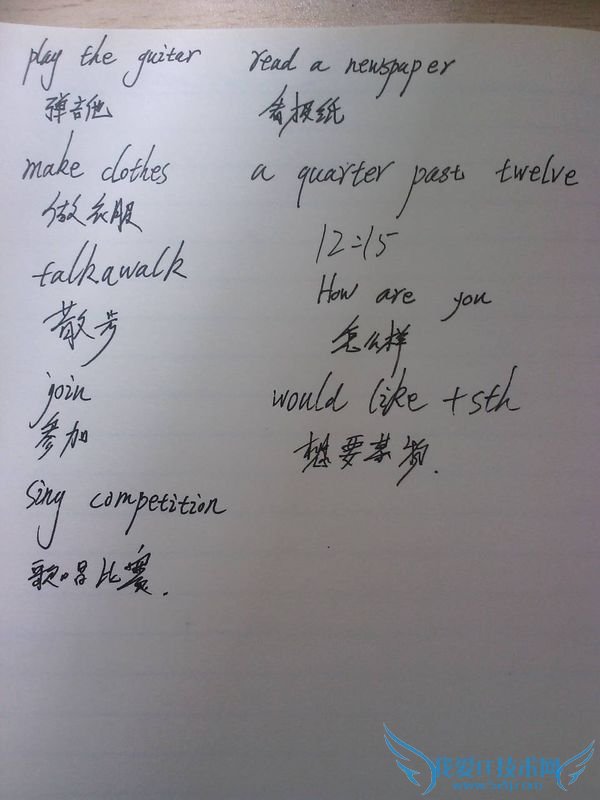 play the guitar
弹吉他
make clothes
做衣服
talkawalk
散步
join
参加
sing competition
歌唱比赛.
read a newspaper
看报纸
a quarter past twelve
12:15
How are you
怎么样
would like +sth
想要某物.
我爱IT技术网